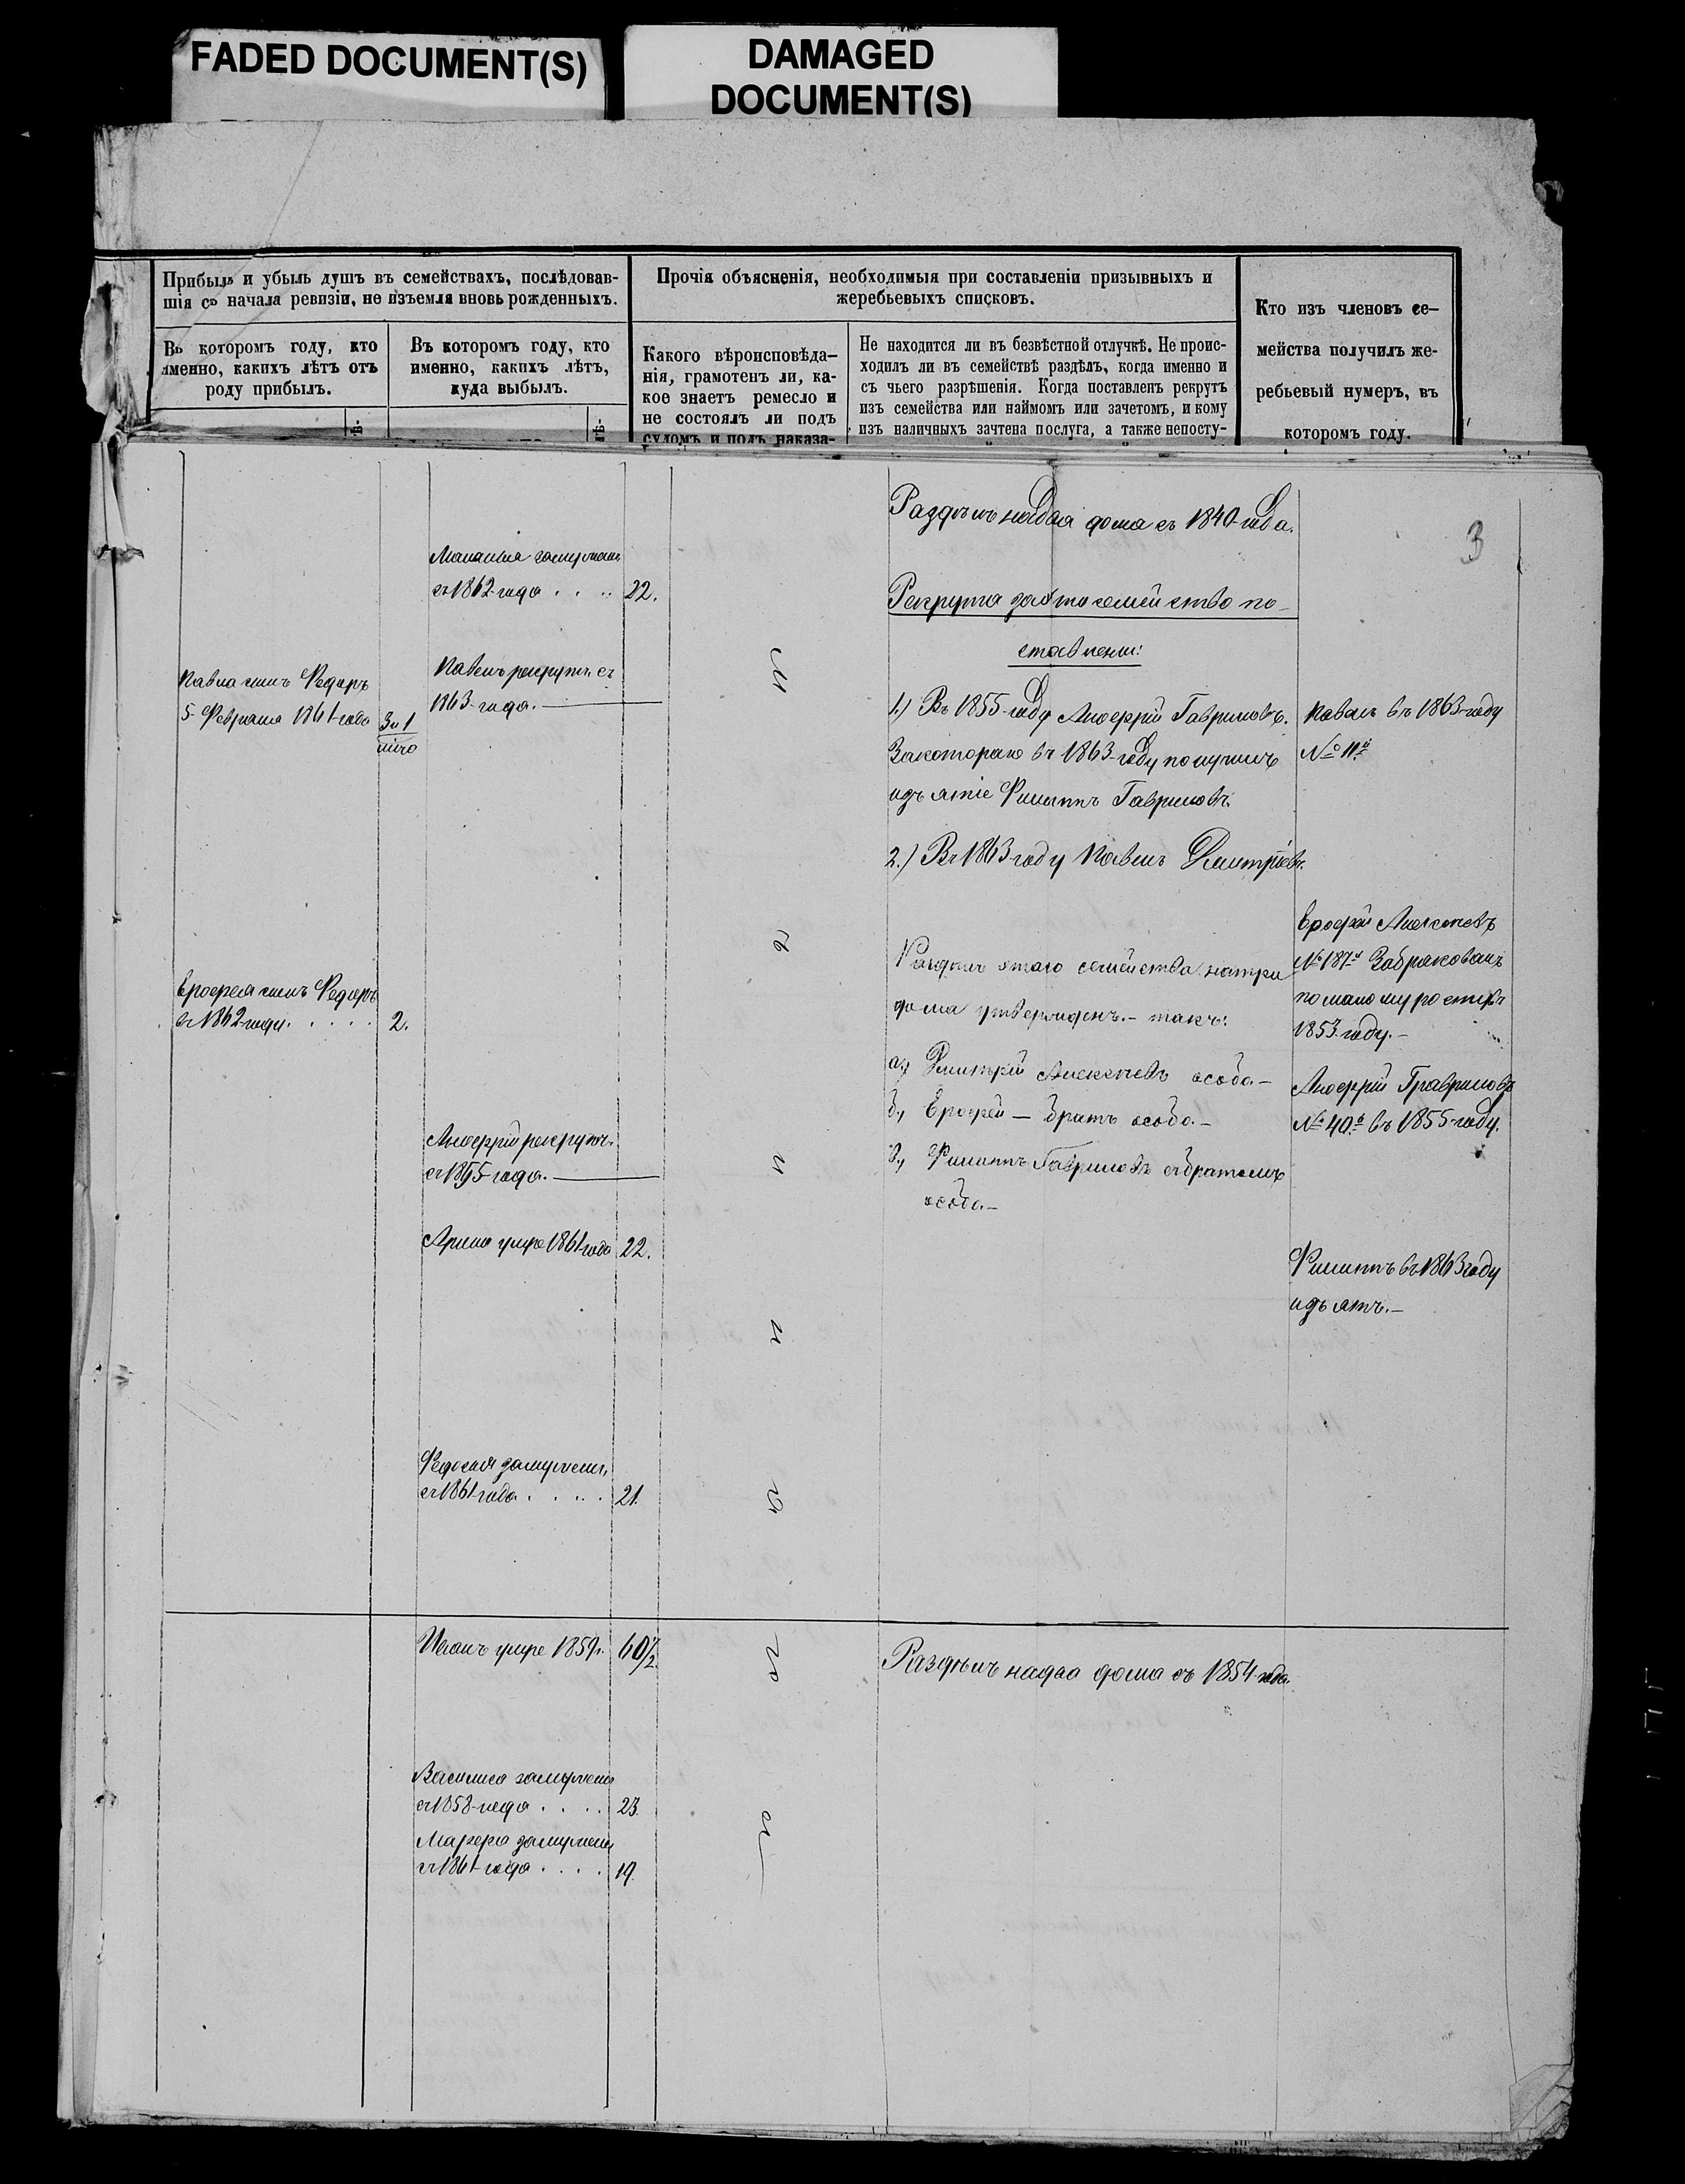 FADED DOCUMENT(S)
DAMAGED
DOCUMENT(S)
Прибыль и убыль душъ въ семействахъ, послѣдовав-
шія съ начала ревизіи, не изъемля вновь рожденныхъ.
Въ которомъ году, кто
именно, какихъ лѣтъ отъ
роду прибылъ.
Въ которомъ году, кто
именно, какихъ лѣтъ,
куда выбылъ.
Прочія объясненія, необходимыя при составленіи призывныхъ и
жеребьевыхъ списковъ.
Какого вѣроисповѣда-
нія, грамотенъ ли, ка-
кое знаетъ ремесло и
не состоялъ ли подъ
судомъ и подъ наказа-
Не находится ли въ безвѣстной отлучкѣ. Не проис-
ходилъ ли въ семействѣ раздѣлъ, когда именно и
съ чьего разрѣшенія. Когда поставленъ рекрутъ
изъ семейства или наймомъ или зачетомъ, и кому
изъ наличныхъ зачтена послуга, а также непосту-
Кто изъ членовъ се-
мейства получилъ же-
ребьевый нумеръ, въ
которомъ году.
3
Маланья замужемъ
съ 1862 года 22.
Павла сынъ Федоръ
5 Февраля 1861 года 3 и 1
Павелъ рекрутъ съ
1863 года.
Ерофея сынъ Федоръ
въ 1862 году. 2.
рекрутъ
съ 1855 года.
Арина умре 1861 года 22.
Федосья замужемъ
съ 1861 года 21.
Раздѣлъ на два дома съ 1840 года.
Рекрута за это семейство по-
ставлены:
1.) Въ 1855 году Гавриловъ.
За котораго въ 1863 году получилъ
изъятіе Филиппъ Гавриловъ.
2.) Въ 1863 году Павелъ Дмитріевъ.
Раздѣлъ этаго семейства на три
дома утвержденъ. — такъ:
а., Дмитрій Алексѣевъ особо. —
б., Ерофей — братъ особо. —
в., Филиппъ Гавриловъ съ братомъ
особо. —
Павелъ въ 1863 году
№ 11й
Ерофей Алексѣевъ
№ 187й Забракованъ
по малому росту въ
1853 году. —
Гавриловъ
№ 40й въ 1855 году.
Филиппъ въ 1863 году
изъятъ. —
Иванъ умре 1859 г. 60½
Раздѣлъ на два дома съ 1854 года.
Василиса замужемъ
съ 1858 года 23.
Марфа замужемъ
съ 1861 года 19.